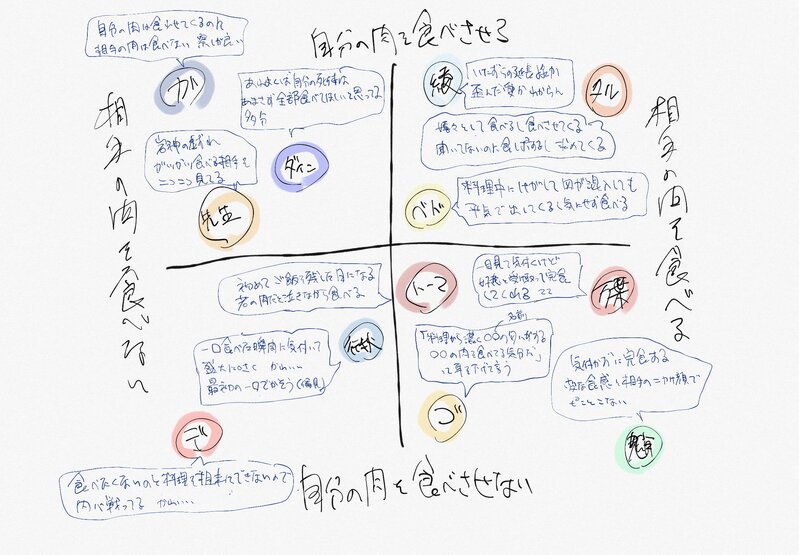 自分の肉を食べさせる
自分の肉は食わせてくるのに
相手の肉は食べない 察しが良い
ガ
あわよくば自分の死体は
あまさず全部食べてほしいと思ってる
多分
ダイン
岩神の戯れ
がいがつ食べる相手を
ニコニコ見てる
先生
相手の肉を食べない
綾
いたずらの延長線か
歪んだ愛かわからん
タル
嬉々として食べるし食べさせてくる
聞いてないのに食レポするし 求めてくる
料理中にけがして血が混入しても
平気で出してくるし気にせず食べる
ベド
相手の肉を食べる
初めてご飯を残した日になる
若の肉だと泣きながら食べる
トーマ
一目見て気付くけど
好意と受け取って完食
してくれる ここ
万葉
一口食べた瞬間に気付いて
盛大にはく かわいい
最初の一口でかそう(偏見)
行秋
名前
「料理から凄く〇〇の匂いがする
〇〇の肉を食べてる気分だ」
って耳そばで言う
ゴ
気付かずに完食する
変な食感と相手のニヤケ顔で
ピンとこない
魈
デ
食べたくないのと料理を粗末にできないので
内心戦ってる かわいい
自分の肉を食べさせない